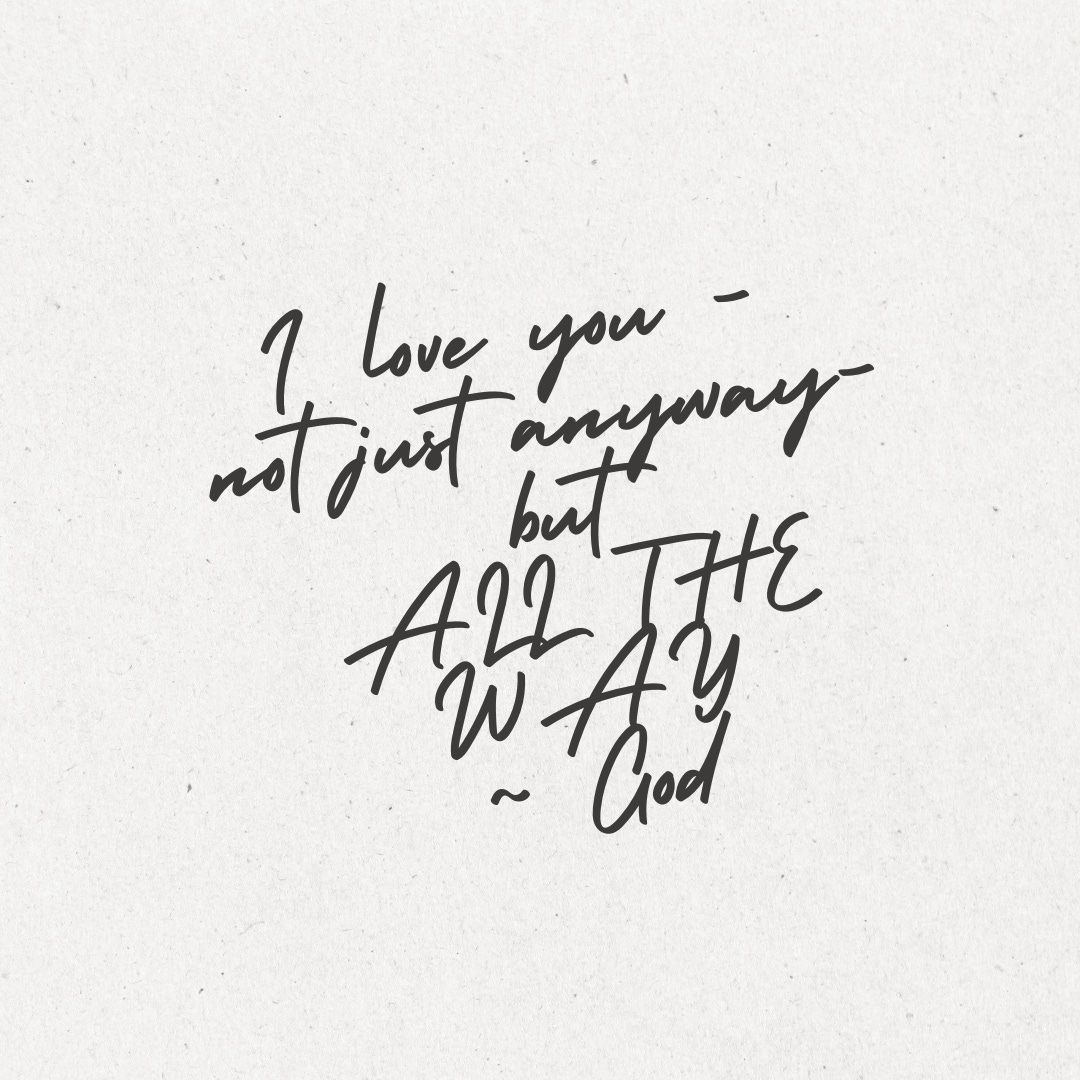 I love you -
not just anyway-
but
ALL THE
WAY
~ God